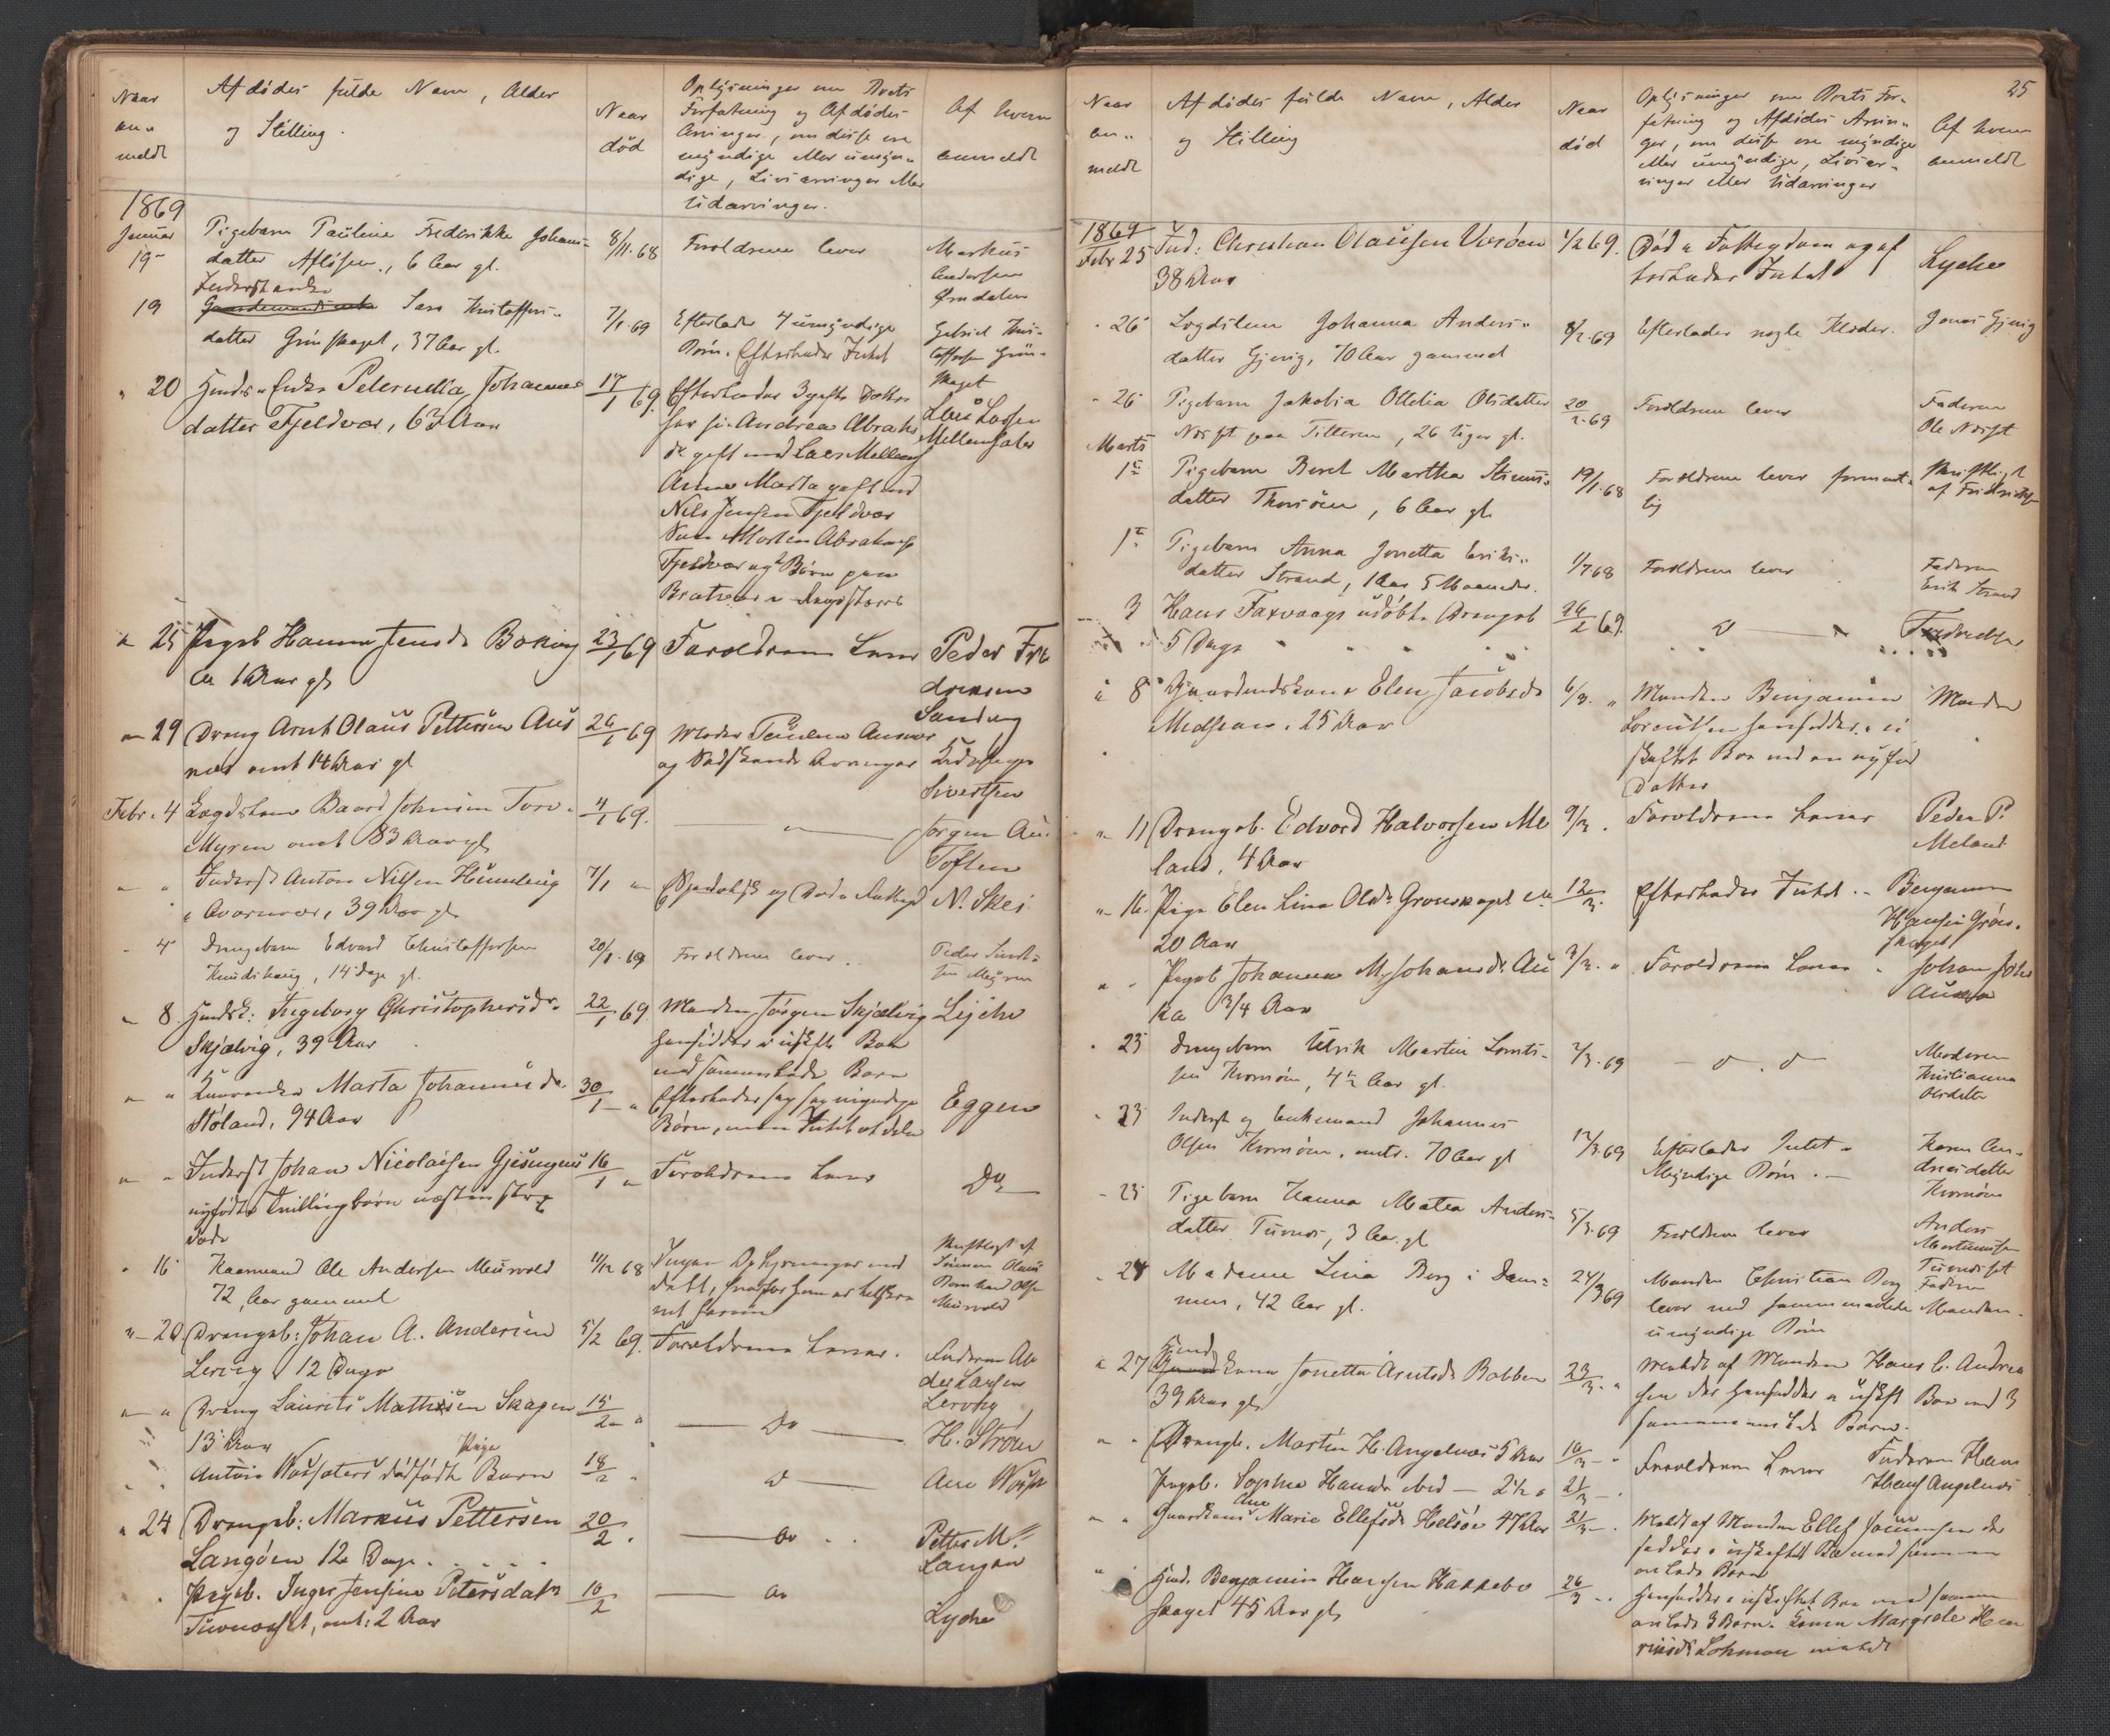 Naar
an-
meldt
Afdødes fulde Navn, Alder
og Stilling.
Naar
død
Oplysninger om Boets
Forfatning og Afdødes
Arvinger, om disse ere
myndige eller umyn-
dige, Livsarvinger eller
Udarvinger.
Af hvem
anmeldt
1869
Januar
19 Pigebarn Pauline Frederikke Johans-
datter Afløsen, 6 Aar gl.
8/11.68 Forældrene lever
Markus
Andersen
Ørndalen
Inderstenke
19 Sara Kristoffers-
datter Grønskaget, 37 Aar gl.
7/1.69 Efterlader 4 umyndige
Børn. Efterlader Intet
Gabriel Kris-
toffersen Grøn-
skaget
" 20 Huusm. Enke Peternella Johannes
datter Fjeldvær, 63 Aar
17/1 69. Efterlader 3 gifte Døtre
Andrea Abrahs
d. gift med Lars Mellem
Anna Marta gift med
Nils Jensen Fjeldvær
Morten Abrahams
Fjeldvær og 2 Børn paa
Lars Larsen
Mellemsæter
" 25 Pigeb. Hanna Jensd. Boking
ca 1 Aar gl
23/1 69 Forældrene Lever
Peder Fre
driksen
Sandvig
" 29 Dreng Arnt Olaus Pettersen Aus
næs omt 14 Aar gl
26/1 69 Moder Paulena Ausnæs
og Sødskende Arvinger
Sivertsen
Febr. 4 Lægdslem Baard Johnsen Torv-
Myren omt 83 Aar gl
4/1 69.
Jørgen An.
Toften
" " Inderst Anton Nilsen Hunding
i Qværnvær, 39 Aar gl
7/1 "
N. Skei
" 4 Drengebarn Edvard Christoffersen
Knudshaug, 14 Dage gl.
20/1.69 Forældrene lever.
Peder Sivert-
sen Myren
" 8. Huusk: Ingeborg Christophersdr.
Skjælvig, 39 Aar
22/1 69 Manden Jørgen Skjælvig
hensidder i uskiftet Bo
med sammenavlede Børn
Lyche
" " Marta Johannesd.
Støland, 94 Aar
30/1 " Efterlader sig myndige
Børn, men Intet at dele
Eggen
" " Inderst Johan Nicolaisen Gjesingnes
nyfødte Tvillingbørn næsten strax
døde
16/1 " Forældrene Lever
Do
" 16 Kaarmand Ole Andersen Meisvold
72 Aar gammel
11/12 68 Ingen Oplysninger med
delt,
Skriftligt af
Simon Olaus
Meisvold
" 20 Drengeb: Johan A. Andersen
Lervig 12 Dage
5/2 69. Forældrene Lever.
Faderen An
ders Larsen
Lervig
" " Dreng Laurits Mathisen Skagen
13 Aar
15/2 " Do
H. Strøm
Anton Wasseters dødfødte Pige Barn
18/2 " Do
" 24 Drengeb: Markus Pettersen
Langøen 12 Dage.
20/2. Do
Petter M.
Langøen
Pigeb. Inger Jensine Petersdatr
omt: 2 Aar
10/2 Do
Lyche
25
Naar
an-
meldt
Afdødes fulde Navn, Alder
og Stilling
Naar
død
Oplysninger om Boets For-
fatning og Afdødes Arvin-
ger, om disse ere myndige
eller umyndige, Livsar-
vinger eller Udarvinger
Af hvem
anmeldt
1869
Febr 25 Ind: Christian Olausen Værøen
38 Aar
1/2 69. Død i Fattigdom og ef
terlader Intet
Lyche
" 26 Lægdslem Johanna Anders-
datter Gjevig, 70 Aar gammel
8/2.69 Efterlader nogle Klæder.
Jonas Gjevig
" 26 Pigebarn Jakobia Ottelia Olsdatter
paa Titteren, 26 Uger gl.
20/2.69 Forældrene lever
Faderen
Ole
Marts
1ste Pigebarn Beret Martha Simons-
datter Thorsøen, 6 Aar gl.
19/1.68 Forældrene lever forment-
lig
Skriftligt
af Fredriksen
1ste Pigebarn Anna Jonetta Eriks-
datter Strand, 1 Aar 5 Maaneder.
1/7 68 Forældrene lever
Faderen
Erik Strand
3 Hans Faxvaags udøbte Drengeb
5 Dage
26/2 69. Do
Fredriksen
" 8 Gaardmdskone Elen Jacobsd
Melssen, 25 Aar
6/3. " Manden Benjamin
Lorentsen hensidder i u
skiftet Bo med en nyfød
Datter
Manden
" 11 Drengeb. Edvard Halvorsen Me
land, 4 Aar
9/3. Forældrene Lever
Peder P.
Meland
" 16. Pige Elen Lina Olsd. Grønskaget
20 Aar
12/3. Efterlader Intet.
Benjamin
Hansen Grøn-
skaget
" " Pigeb Johanna M. Johansd. Au
ka 3/4 Aar
3/3. " Forældrene Lever
Johan Johs
Auka
" 23 Drengebarn Ulrik Martin Lorents-
sen Kvernøen, 4½ Aar gl.
2/3.69 Do
Moderen
Kristianna
Olsdatter
" 23 Inderst og Enkemand Johannes
Olsen Kvernøen, omtr. 70 Aar gl
12/3.69 Efterlader Intet.
Myndige Børn.
Karen An-
dreasdatter
Kvernøen
" 23 Pigebarn Hanna Matea Anders-
datter Tuvnes, 3 Aar gl
5/3.69 Forældrene lever
Anders
Martinussen
Faderen
" 24 Madame Lina Borg i Dam-
men, 42 Aar gl.
24/3 69 Manden Christian Borg
lever med sammenavlede
umyndige Børn
Manden.
" 27 Huusmd Kone Jonetta Arntsd. Bobben
39 Aar gl
23/3. " Meldt af Manden Hans C. Andrea
sen der hensidder i uskift Bo med 3
sammenavlede Børn.
" " Drengb. Martin H. Angelnæs 5 Aar
10/3 " Forældrene Lever
Faderen Hans
Hans Angelnes
Pigeb. Sophie Hansdr ibid — 2½ "
21/3 —
" " Gaardkone Ane Marie Ellefsd. Helsøe 47 Aar
21/3 — Meldt af Manden Ellef Joensen der
sidder i uskiftet Bo med sammen
avlede Børn
" Huusm. Benjamin Hansen Hakkebo
skaget 45 Aar gl
26/3 — Hensidder i uskiftet Bo med sammen
avlede 3 Børn. Konen Margrete Hen
riksd. Lohmen meldt